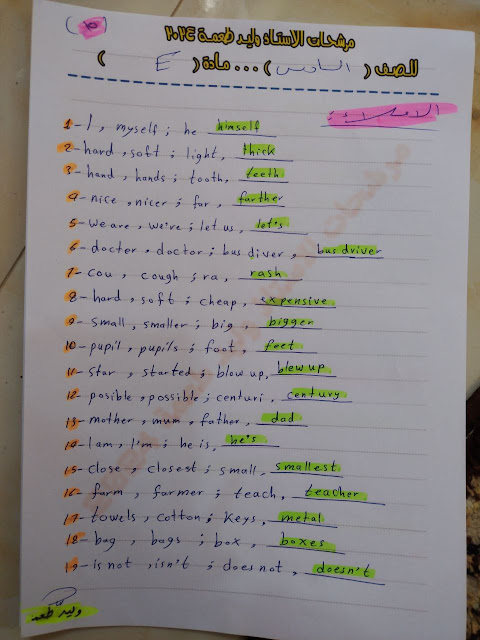 (ط)
مرشحات الاستاذ وليد طعمة ٢٠٢٤
للصف ( السادس ) ... مادة ( E )
الاملاء :
1- I , myself ; he himself
2- hard , soft ; light , thick
3- hand , hands ; tooth , teeth
4- nice , nicer ; far , farther
5- we are , we're ; let us , let's
6- docter , doctor ; bus diver , bus driver
7- cou , cough ; ra , rash
8- hard , soft ; cheap , expensive
9- small , smaller ; big , bigger
10- pupil , pupils ; foot , feet
11- star , started ; blow up , blew up
12- posible , possible ; centuri , century
13- mother , mum , father , dad
14- I am , I'm ; he is , he's
15- close , closest ; small , smallest
16- farm , farmer ; teach , teacher
17- towels , cotton ; keys , metal
18- bag , bags ; box , boxes
19- is not , isn't ; does not , doesn't
وليد طعمة